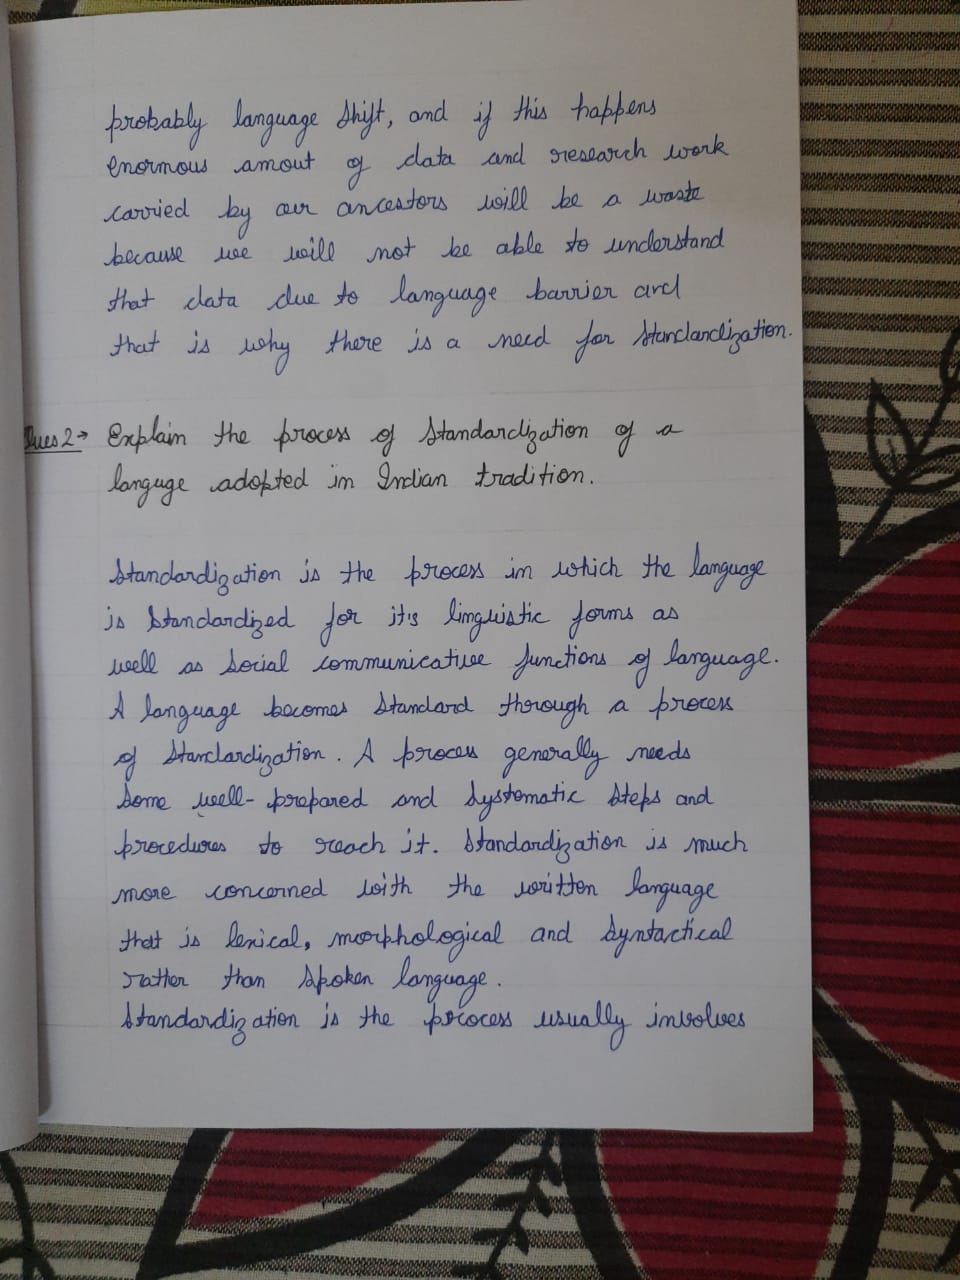 probably language shift, and if this happens
enormous amout of data and research work
carried by our ancestors will be a waste
because we will not be able to understand
that data due to language barrier and
that is why there is a need for standardization.
Ques 2→ Explain the process of standardization of a
languge adopted in Indian tradition.
Standardization is the process in which the language
is standardized for it's linguistic forms as
well as social communicative functions of language.
A language becomes standard through a process
of standardization. A process generally needs
some well-prepared and systematic steps and
procedures to reach it. Standardization is much
more concerned with the written language
that is lexical, morphological and syntactical
rather than spoken language.
Standardization is the process usually involves